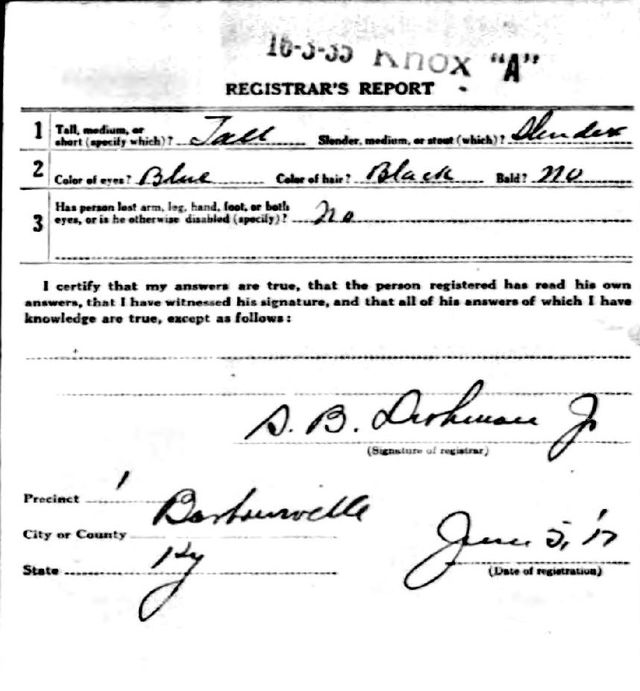 16-3-35 Knox "A"
REGISTRAR'S REPORT
1 Tall, medium, or short (specify which)? Tall Slender, medium, or stout (which)? Slender
2 Color of eyes? Blue Color of hair? Black Bald? No
3 Has person lost arm, leg, hand, foot, or both
eyes, or is he otherwise disabled (specify)? No
I certify that my answers are true, that the person registered has read his own
answers, that I have witnessed his signature, and that all of his answers of which I have
knowledge are true, except as follows:
S. B. Dishman Jr
(Signature of registrar)
Precinct 1
City or County Barbourville
State Ky
June 5, '17
(Date of registration)